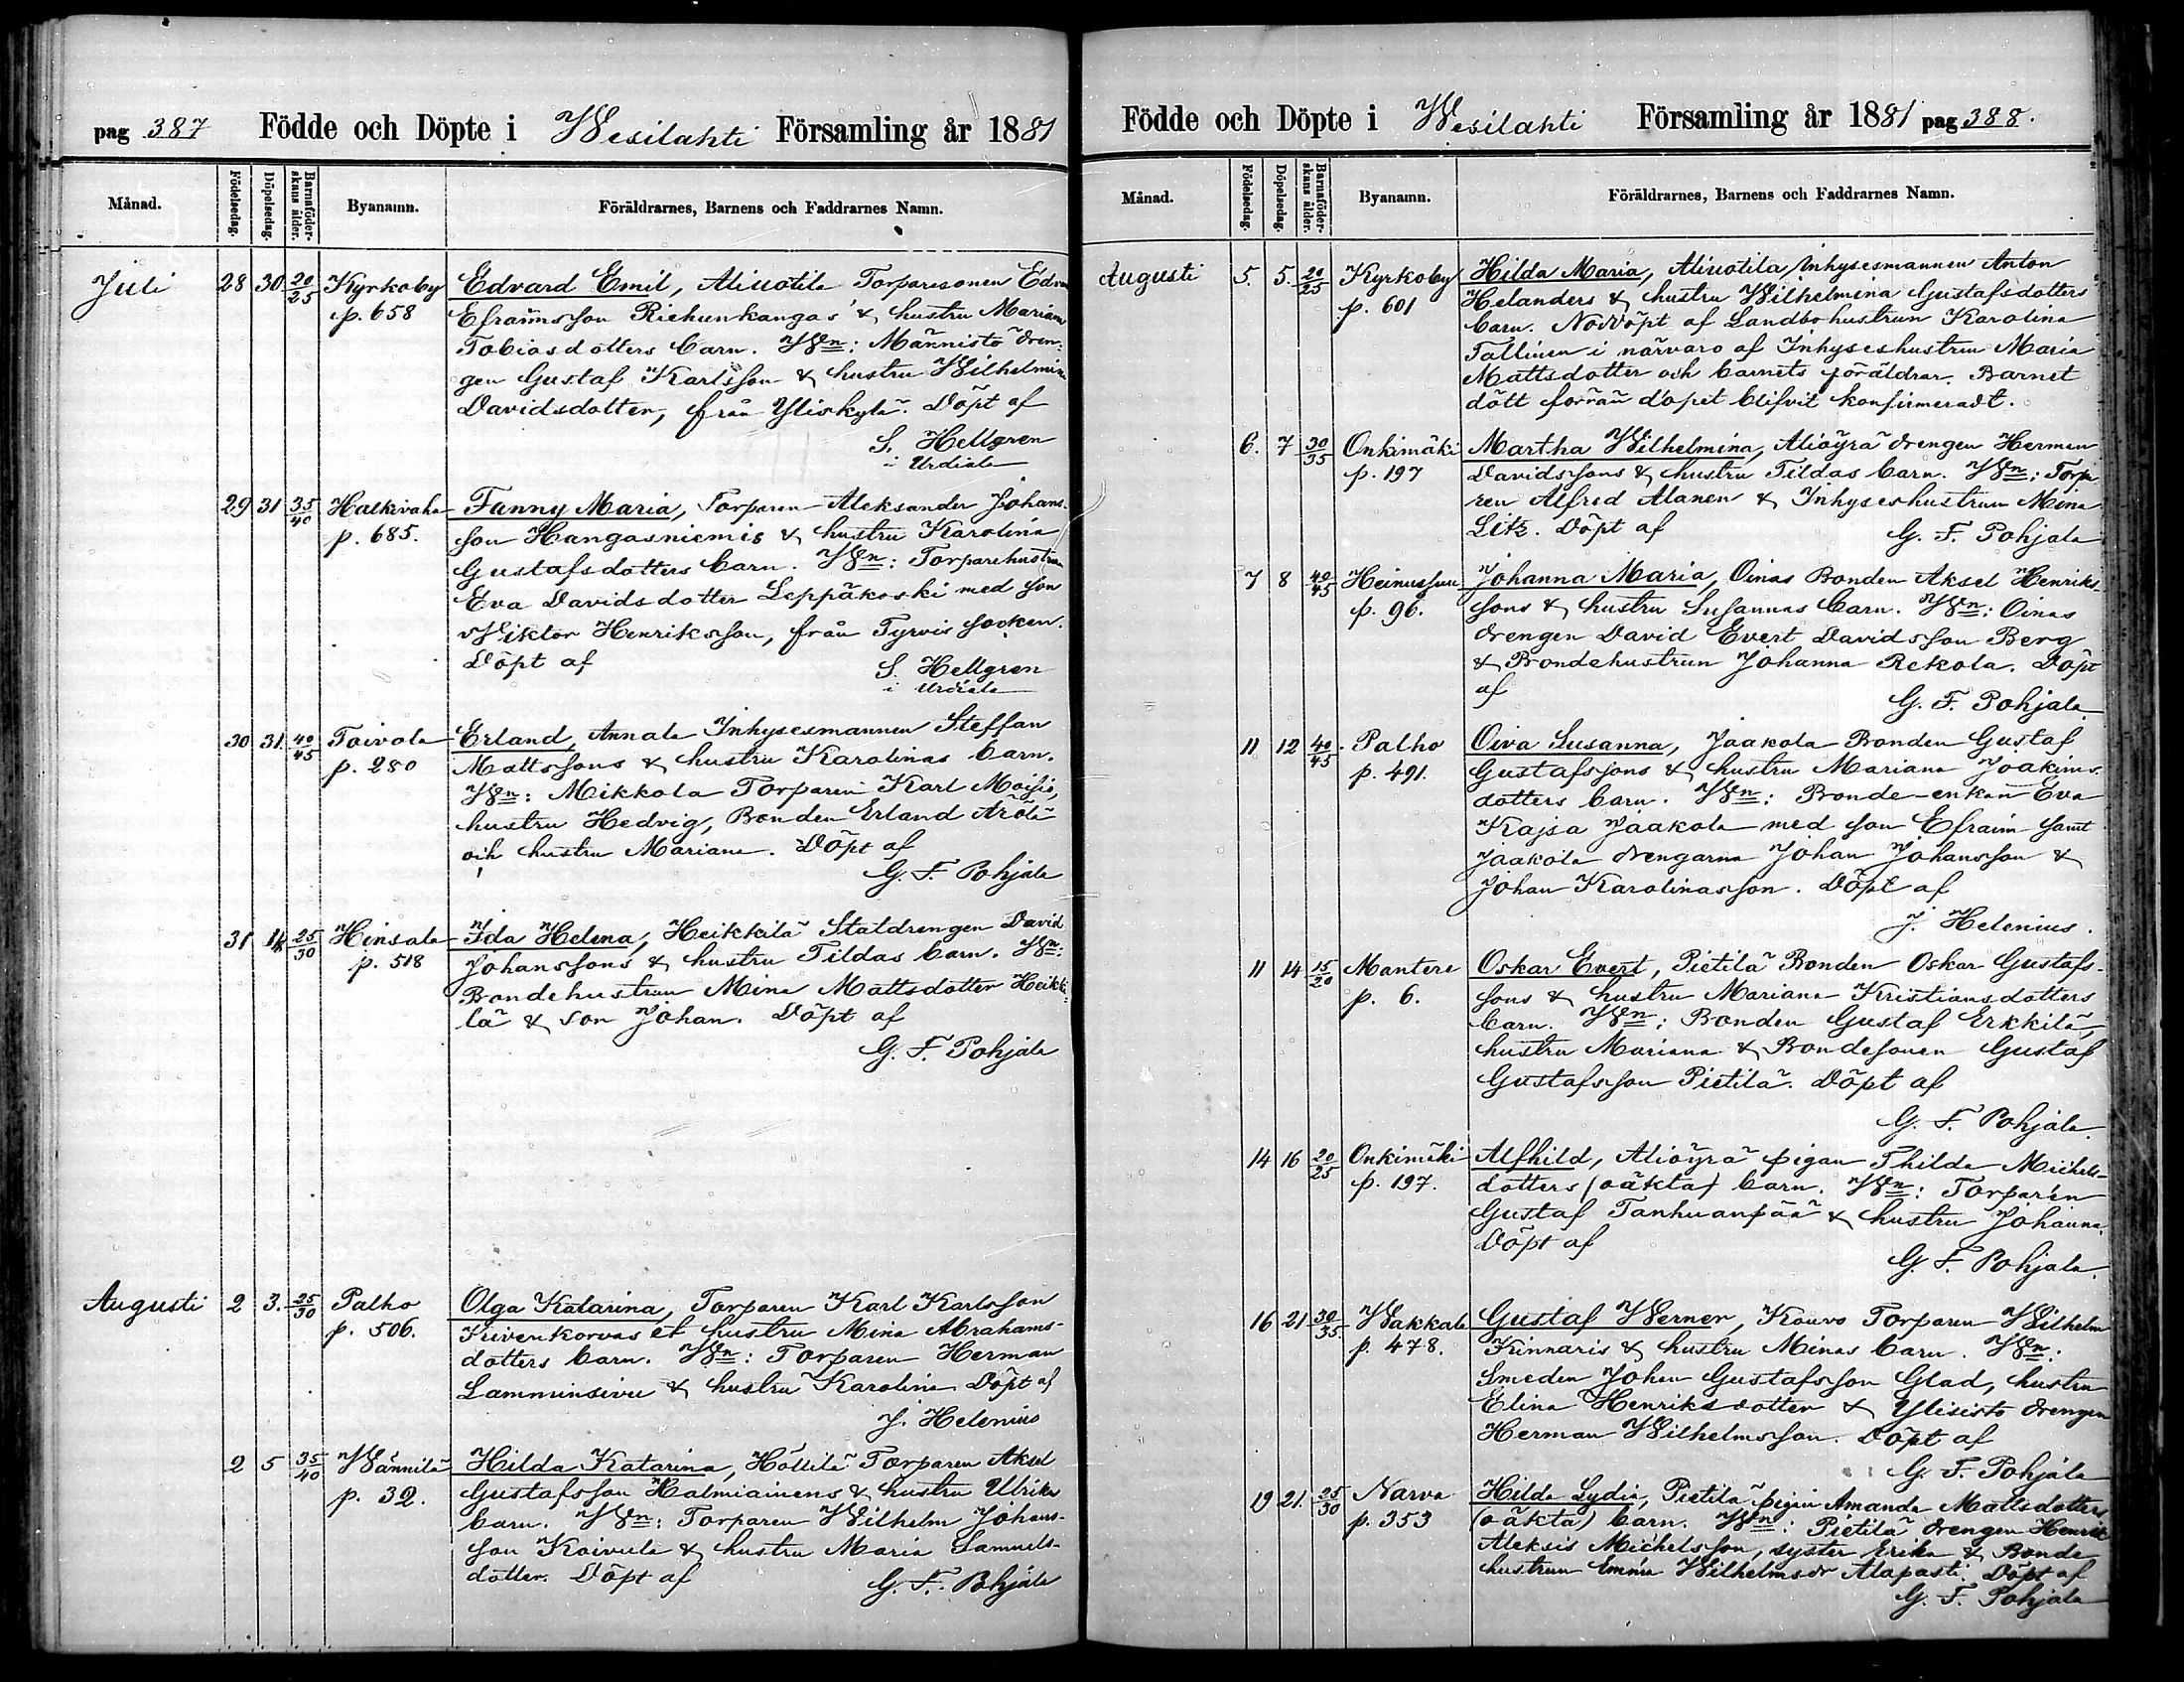 pag 387 Födde och Döpte i Wesilahti Församling år 1881
Månad. Födelsedag. Döpelsedag. Barnaföderskans ålder. Byanamn. Föräldrarnes, Barnens och Faddrarnes Namn.
Juli 28 30 20/25 Kyrkoby Edvard Emil, Alinotila Torparesonen Edvard
p. 658 Efraimsson Riehunkangas' & hustru Mariana
Tobiasdotters barn. Wn: Männistö dren-
gen Gustaf Karlsson & hustru Wilhelmina
Davidsdotter, från Yliskylä. Döpt af
S. Hellgren
i Urdiala
29 31 35/40 Halkivaha Fanny Maria, Torparen Aleksander Johans-
p. 685. son Hangasniemis & hustru Karolina
Gustafsdotters barn. Wn: Torparehustrun
Eva Davidsdotter Leppäkoski med son
Wiktor Henriksson, från Tyrvis socken.
Döpt af S. Hellgren
i Urdiala
30 31. 40/45 Toivola Erland, Annala Inhysesmannen Steffan
p. 280 Mattssons & hustru Karolinas barn.
Wn: Mikkola Torparen Karl Moisio,
hustru Hedvig, Bonden Erland Arölä
och hustru Mariana. Döpt af
G. F. Pohjala
31 1/8 25/30 Hinsala Ida Helena, Heikkilä Staldrengen David
p. 518 Johanssons & hustru Tildas barn. Wn:
Bondehustrun Mina Mattsdotter Heikki-
lä & son Johan. Döpt af
G. F. Pohjala
Augusti 2 3. 25/30 Palho Olga Katarina, Torparen Karl Karlsson
p. 506. Kivenkorvas et hustru Mina Abrahams-
dotters barn. Wn: Torparen Herman
Lamminsivu & hustru Karolina Döpt af
J. Helenius
2 5 35/40 Wännilä Hilda Katarina, Höllilä Torparen Aksel
p. 32. Gustafsson Halmiainens & hustru Ulrikas
barn. Wn: Torparen Wilhelm Johans-
son Koivula & hustru Maria Samuels-
dotter. Döpt af G. F. Pohjala
Födde och Döpte i Wesilahti Församling år 1881 pag 388.
Månad. Födelsedag. Döpelsedag. Barnaföderskans ålder. Byanamn. Föräldrarnes, Barnens och Faddrarnes Namn.
Augusti 5. 5. 20/25 Kyrkoby Hilda Maria, Alinotila Inhysesmannen Anton
p. 601 Helanders & hustru Wilhelmina Gustafsdotters
barn. Nöddöpt af Landbohustrun Karolina
Tallinen i närvaro af Inhyseshustrun Maria
Mattsdotter och barnets föräldrar. Barnet
dött förrän dopet blifvit konfirmeradt.
6. 7 30/35 Onkimäki Martha Wilhelmina, Aliöyrä drengen Herman
p. 197 Davidssons & hustru Tildas barn. Wn: Torpa
ren Alfred Alanen & Inhyseshustrun Mina
Litz. Döpt af G. F. Pohjala
7 8 40/45 Heinusuu Johanna Maria, Oinas Bonden Aksel Henriks-
p. 96. sons & hustru Susannas barn. Wn: Oinas
drengen David Evert Davidsson Berg
& Bondehustrun Johanna Rekola. Döpt
af
G. F. Pohjala.
11 12 40/45 Palho Oiva Susanna, Jaakola Bonden Gustaf
p. 491. Gustafssons & hustru Mariana Joakims-
dotters barn. Wn: Bonde-enkan Eva
Kajsa Jaakola med son Efraim samt
Jaakola drengarna Johan Johansson &
Johan Karolinasson. Döpt af
J. Helenius.
11 14 15/20 Mantere Oskar Evert, Pietilä Bonden Oskar Gustafs-
p. 6. sons & hustru Mariana Kristiansdotters
barn. Wn: Bonden Gustaf Erkkilä,
hustru Mariana & Bondesonen Gustaf
Gustafsson Pietilä. Döpt af
G. F. Pohjala.
14 16 20/25 Onkimäki Alfhild, Aliöyrä pigan Thilda Michels-
p. 197. dotters (oäkta) barn. Wn: Torparen
Gustaf Tanhuanpää & hustru Johanna.
Döpt af
G. F. Pohjala.
16 21 30/35 Wakkala Gustaf Werner, Kouvo Torparen Wilhelm
p. 478. Kinnaris & hustru Minas barn. Wn:
Smeden Johan Gustafsson Glad, hustru
Elina Henriksdotter & Ylisisto drengen
Herman Wilhelmsson. Döpt af
G. F. Pohjala
19 21. 25/30 Narva Hilda Lydia, Pietilä pigan Amanda Mattsdotters
p. 353 (oäkta) barn. Wn: Pietilä drengen Henrik
Aleksis Michelsson, syster Erika & Bonde-
hustrun Emma Wilhelmsdr Alapasti. Döpt af
G. F. Pohjala